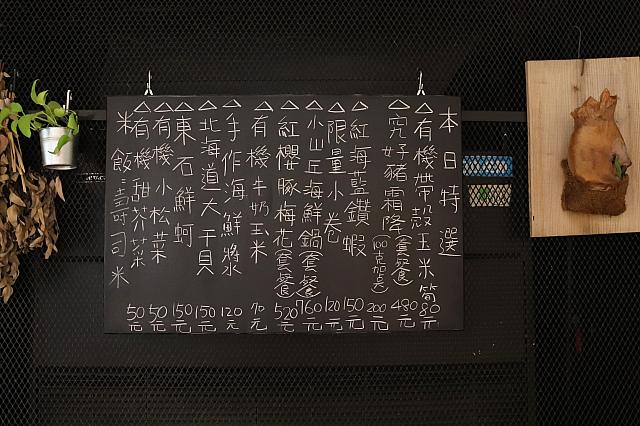 本日特選
△有機帶殼玉米筍80元
△究好豬霜降(套餐)480元
(100克加点)200元
△紅海藍鑽蝦150元
△限量小卷120元
△小山丘海鮮鍋(套餐)760元
△紅櫻豚梅花(套餐)520元
△有機牛奶玉米70元
△手作海鮮漿120元
△北海道大干貝150元
△東石鮮蚵150元
△有機小松菜50元
△有機甜芥菜50元
米飯:壽司米